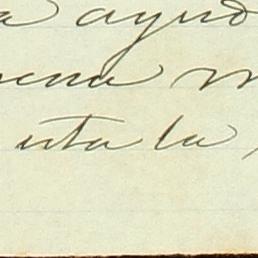 a ayud
ena m
esta la